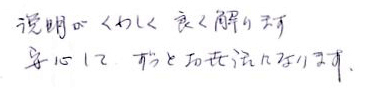 説明がくわしく良く解ります
安心して、ずっとお世話になります。